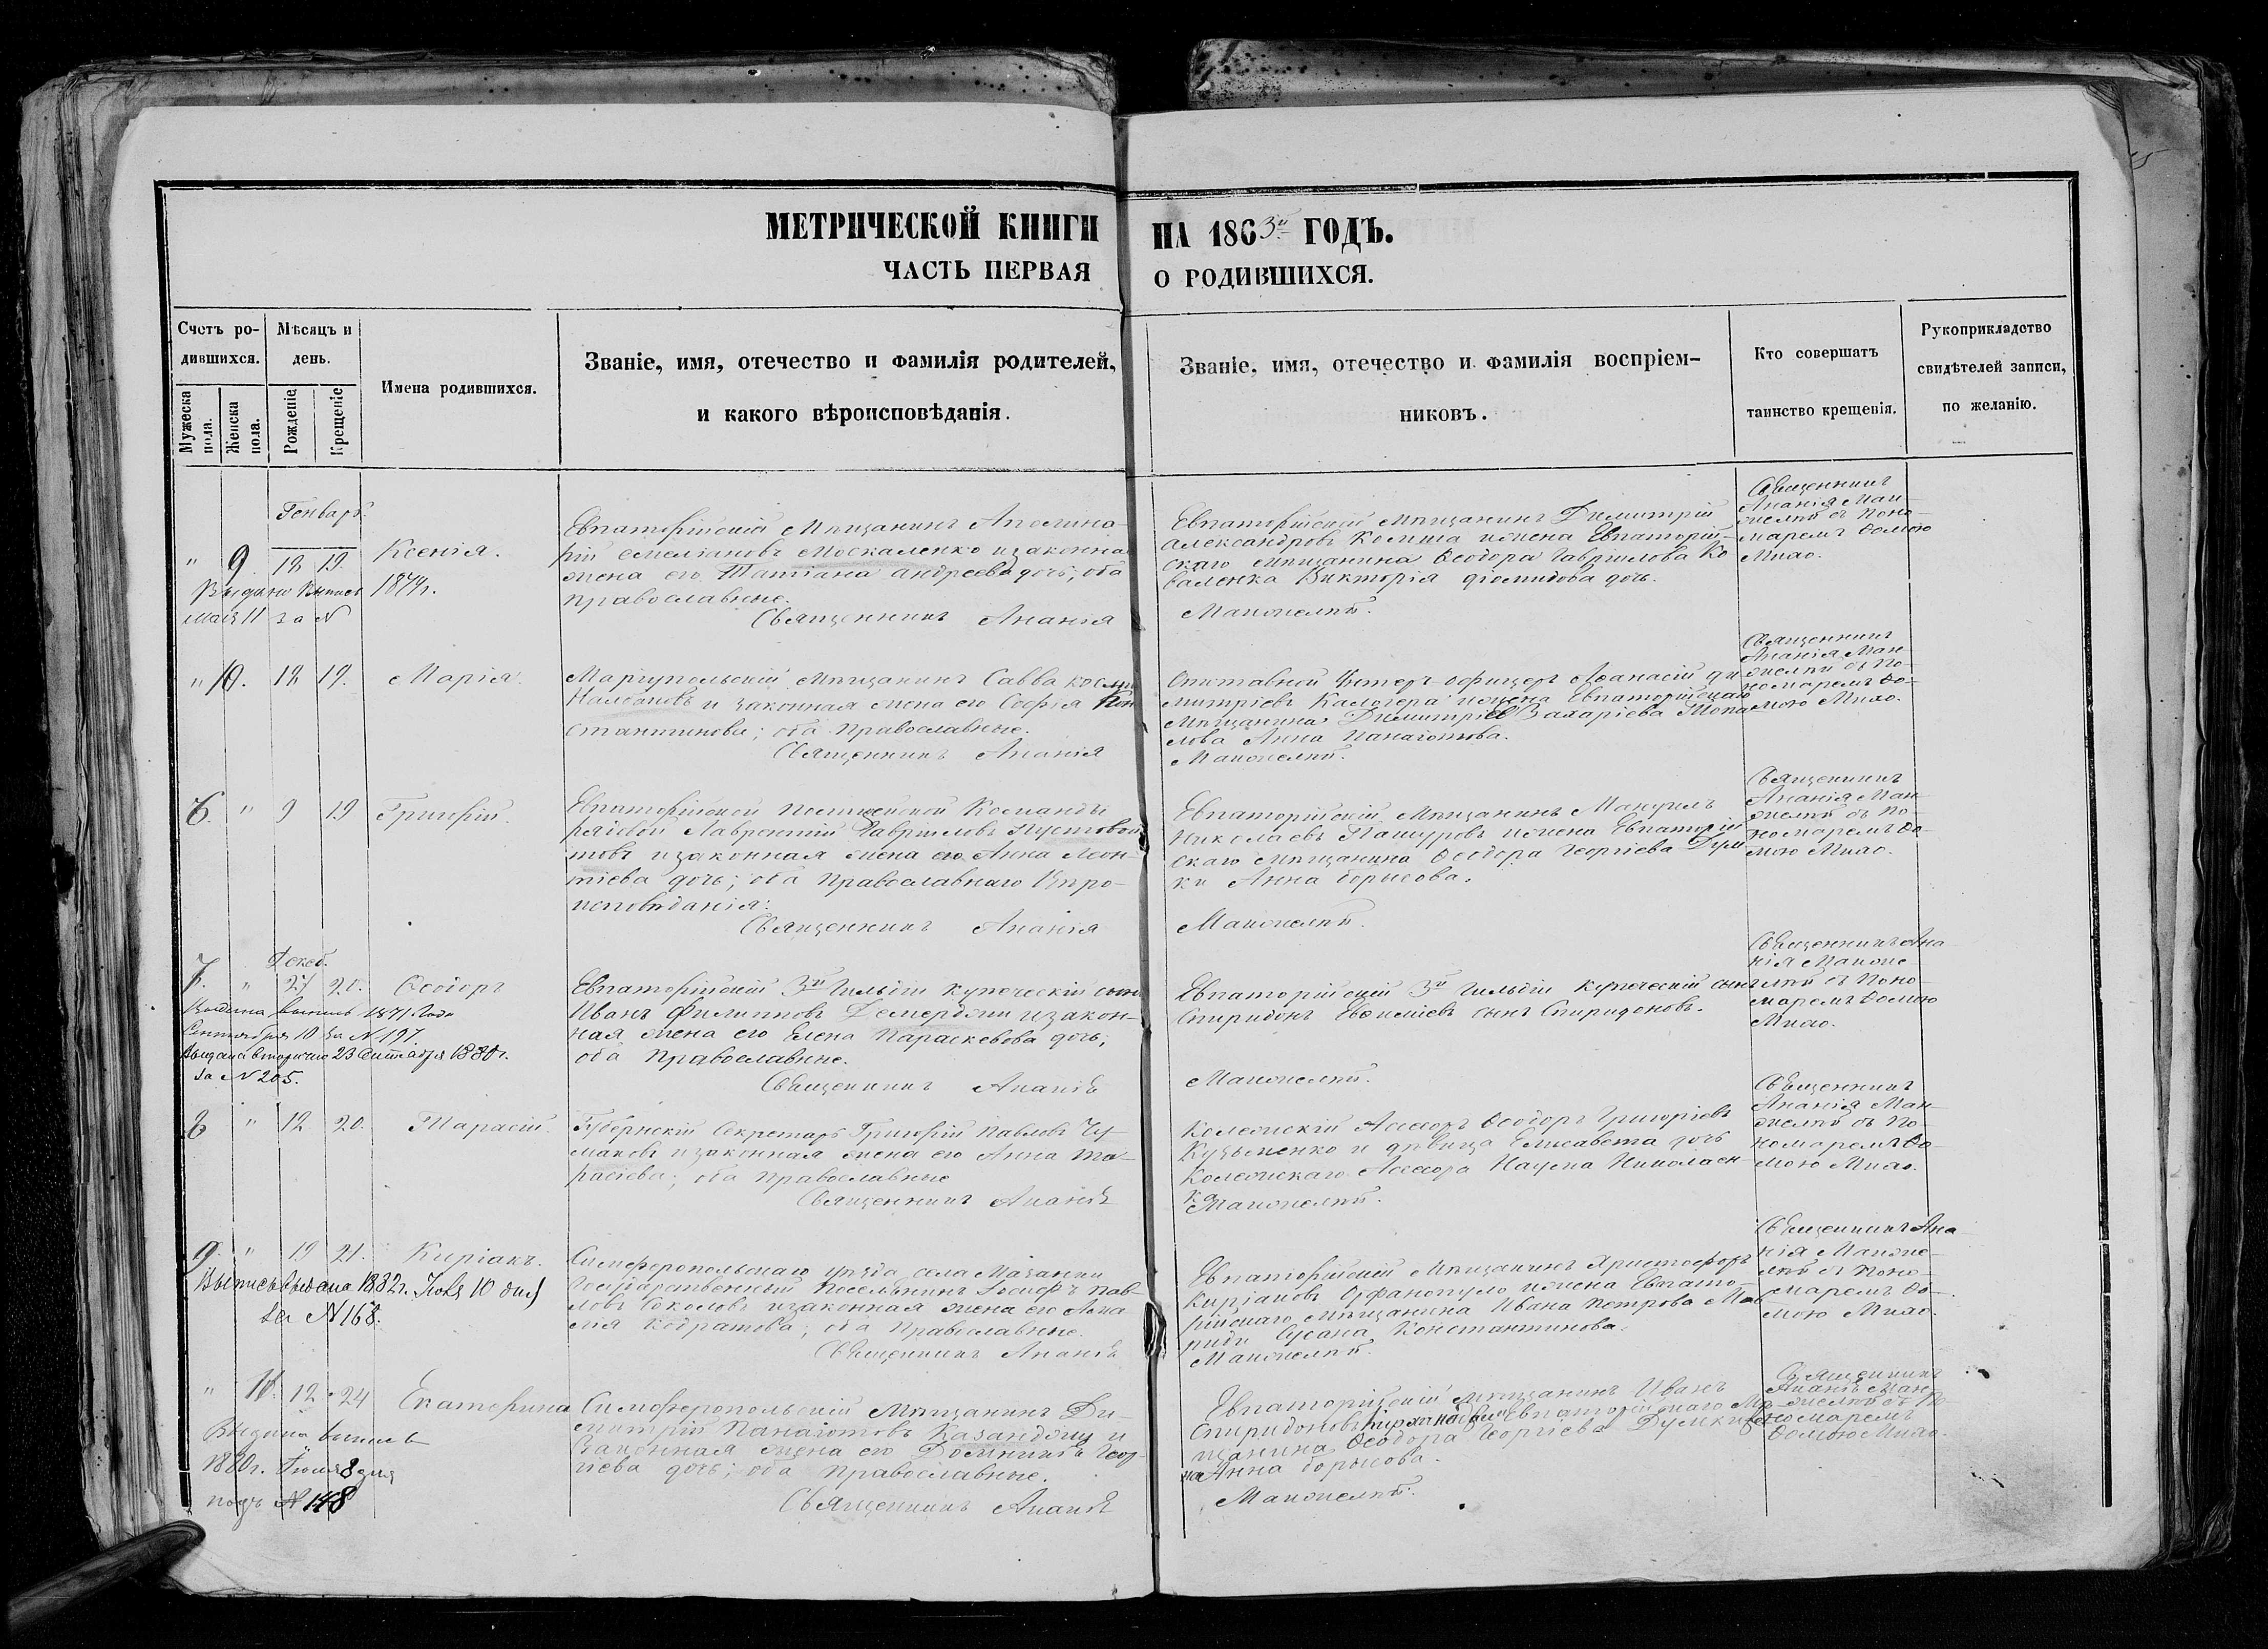 МЕТРИЧЕСКОЙ КНИГИ НА 1863й ГОДЪ.
ЧАСТЬ ПЕРВАЯ О РОДИВШИХСЯ.
Счетъ ро-
дившихся.
Мужеска
пола.
Женска
пола.
Мѣсяцъ и
день.
Рожденіе
Крещеніе
Имена родившихся.
Званіе, имя, отечество и фамилія родителей,
и какого вѣроисповѣданія.
Званіе, имя, отечество и фамилія воспріем-
никовъ.
Кто совершатъ
таинство крещенія.
Рукоприкладство
свидѣтелей записи,
по желанію.
Генварь.
" 9. 12 19. Ксенія.
Выдана выпись 1874г.
мая 11 за N
Евпаторійскій мѣщанинъ Аполина-
рій Емеліановъ Москаленко и законная
жена его Татіана Андреева дочь, оба
православные.
Священникъ Ананія
Евпаторійскій мѣщанинъ Димитрій
Александровъ и жена Евпаторій-
скаго мѣщанина Ѳеодора Гавріилова Ко
валенка Викторія Діомидова дочь.
Священникъ
Ананія Ман-
съ поно-
маремъ Ѳомою
" 10. 12 19. Марія.
Маріупольскій мѣщанинъ Савва
Налбановъ и законная жена его Софія Кон
стантинова; оба православные.
Священникъ Ананія
Отставной Унтеръ-офицеръ Аѳанасій Ди
митріевъ Калогера и жена Евпаторійскаго
мѣщанина Димитрія Захаріева Топа
лова Анна Панаіотова.
Священникъ
Ананія Ман-
съ по-
номаремъ Ѳо-
мою
6. " 9 19 Григорій.
Евпаторійской полицейской Команды
рядовой Лаврентій Гавріиловъ
и законная жена его Анна Леон-
тіева дочь; оба православнаго вѣро-
исповѣданія.
Священникъ Ананія
Евпаторійскій мѣщанинъ Мануилъ
Николаевъ Пашуровъ и жена Евпаторій
скаго мѣщанина Ѳеодора Георгіева Дум
ки Анна Борисова.
Священникъ
Ананія Ман-
съ по-
номаремъ Ѳо-
мою
Декаб.
7. " 27 20. Ѳеодоръ
Выдана выпись 1871 года
Сентября 10 за N 197
Выдана вторично 23 Сентября 1880г.
за N 205.
Евпаторійскій 3й гильдіи купеческій сынъ
Иванъ Филипповъ Демерджи и закон-
ная жена его Елена Параскевова дочь,
оба православные.
Священникъ Ананія
Евпаторійскій 3й гильдіи купеческій сынъ
Спиридонъ сынъ Спиридоновъ.
Священникъ Ана
нія
съ поно
маремъ Ѳомою
8 " 12 20. Тарасій.
Губернскій Секретарь Григорій Павловъ Чу-
маковъ и законная жена его Анна Та-
расіева; оба православные
Священникъ Ананія
Колежскій Ассесоръ Ѳеодоръ Григоріевъ
Кузьменко и дѣвица Елисавета дочь
Колежскаго Ассесора Наума Николаен-
ка.
Священникъ
Ананія Ман-
съ по-
номаремъ Ѳо-
мою
9. " 19 21. Киріакъ.
Выпись выдана 1882г. Іюля 10 дня
за N 168.
Симферопольскаго уѣзда села Мазанки
Государственный поселянинъ Іосифъ Пав-
ловъ Соколовъ и законная жена его
Кодратова; оба православные.
Священникъ Ананія
Евпаторійскій мѣщанинъ Христофоръ
Киріаковъ Орфанопуло и жена Евпато-
рійскаго мѣщанина Ивана Петрова
Сусана Константинова.
Священникъ Ана
нія
съ поно-
маремъ Ѳо-
мою
" 11. 12 24 Екатерина
Выдана выпись
1880г. Іюля 8 дня
подъ N 148
Симферопольскій мѣщанинъ Ди-
митрій Панаіотовъ Казанджи и
законная жена его Домникія Геор-
гіева дочь; оба православные.
Священникъ Ананія
Евпаторійскій мѣщанинъ Иванъ
Спиридоновъ Евпаторійскаго мѣ-
щанина Ѳеодора Георгіева
Анна Борисова.
Священникъ
Ананія Ман-
съ по-
номаремъ
Ѳомою